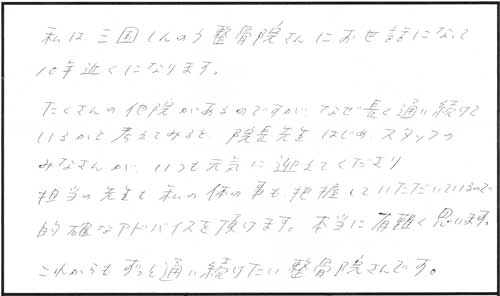 私は三国しんのう整骨院さんにお世話になって
10年近くになります。
たくさんの他院があるのですが、なぜ長く通い続けて
いるかと考えてみると、院長先生はじめ、スタッフの
みなさんが、いつも元気に迎えてくださり
担当の先生も私の体の事も把握していただいているので
的確なアドバイスを頂けます。本当に有難く思います。
これからもずっと通い続けたい整骨院さんです。